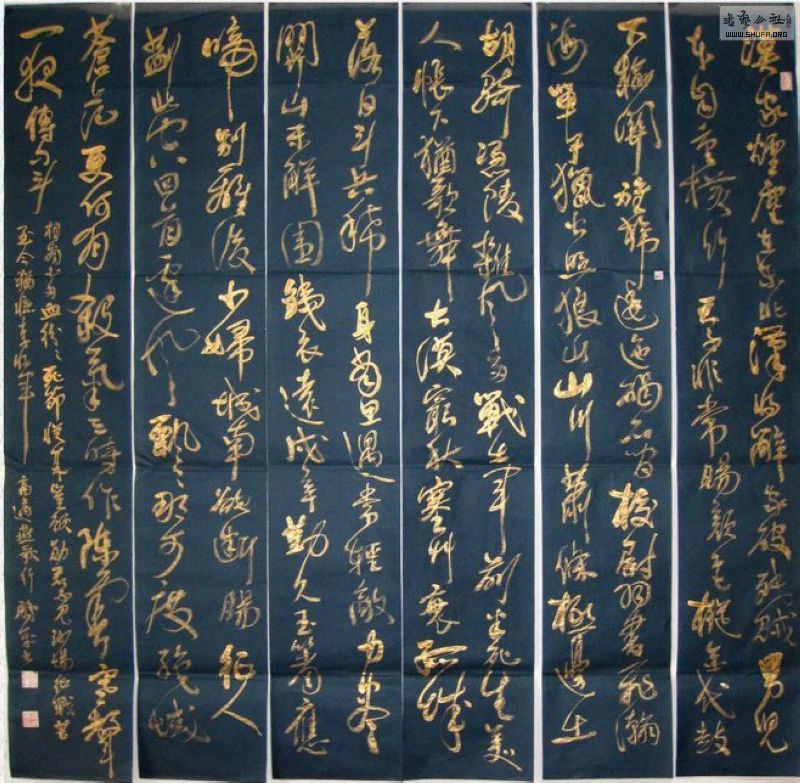 漢家煙塵在東北漢將辭家破殘賊男兒
本自重橫行天子非常賜顏色摐金伐鼓
下榆關旌旆逶迤碣石間校尉羽書飛瀚
海單于獵火照狼山山川蕭條極邊土
胡騎憑陵雜風雨戰士軍前半死生美
人帳下猶歌舞大漠窮秋塞草衰孤城
落日斗兵稀身當恩遇常輕敵力盡
關山未解圍鐵衣遠戍辛勤久玉箸應
啼別離後少婦城南欲斷腸征人
薊北空回首邊風飄飄那可度絕域
蒼茫更何有殺氣三時作陣雲寒聲
一夜傳刁斗
相看白刃血紛紛死節從來豈顧勳君不見沙場征戰苦
至今猶憶李將軍 高適燕歌行
書藝公社
WWW.SHUFA.ORG